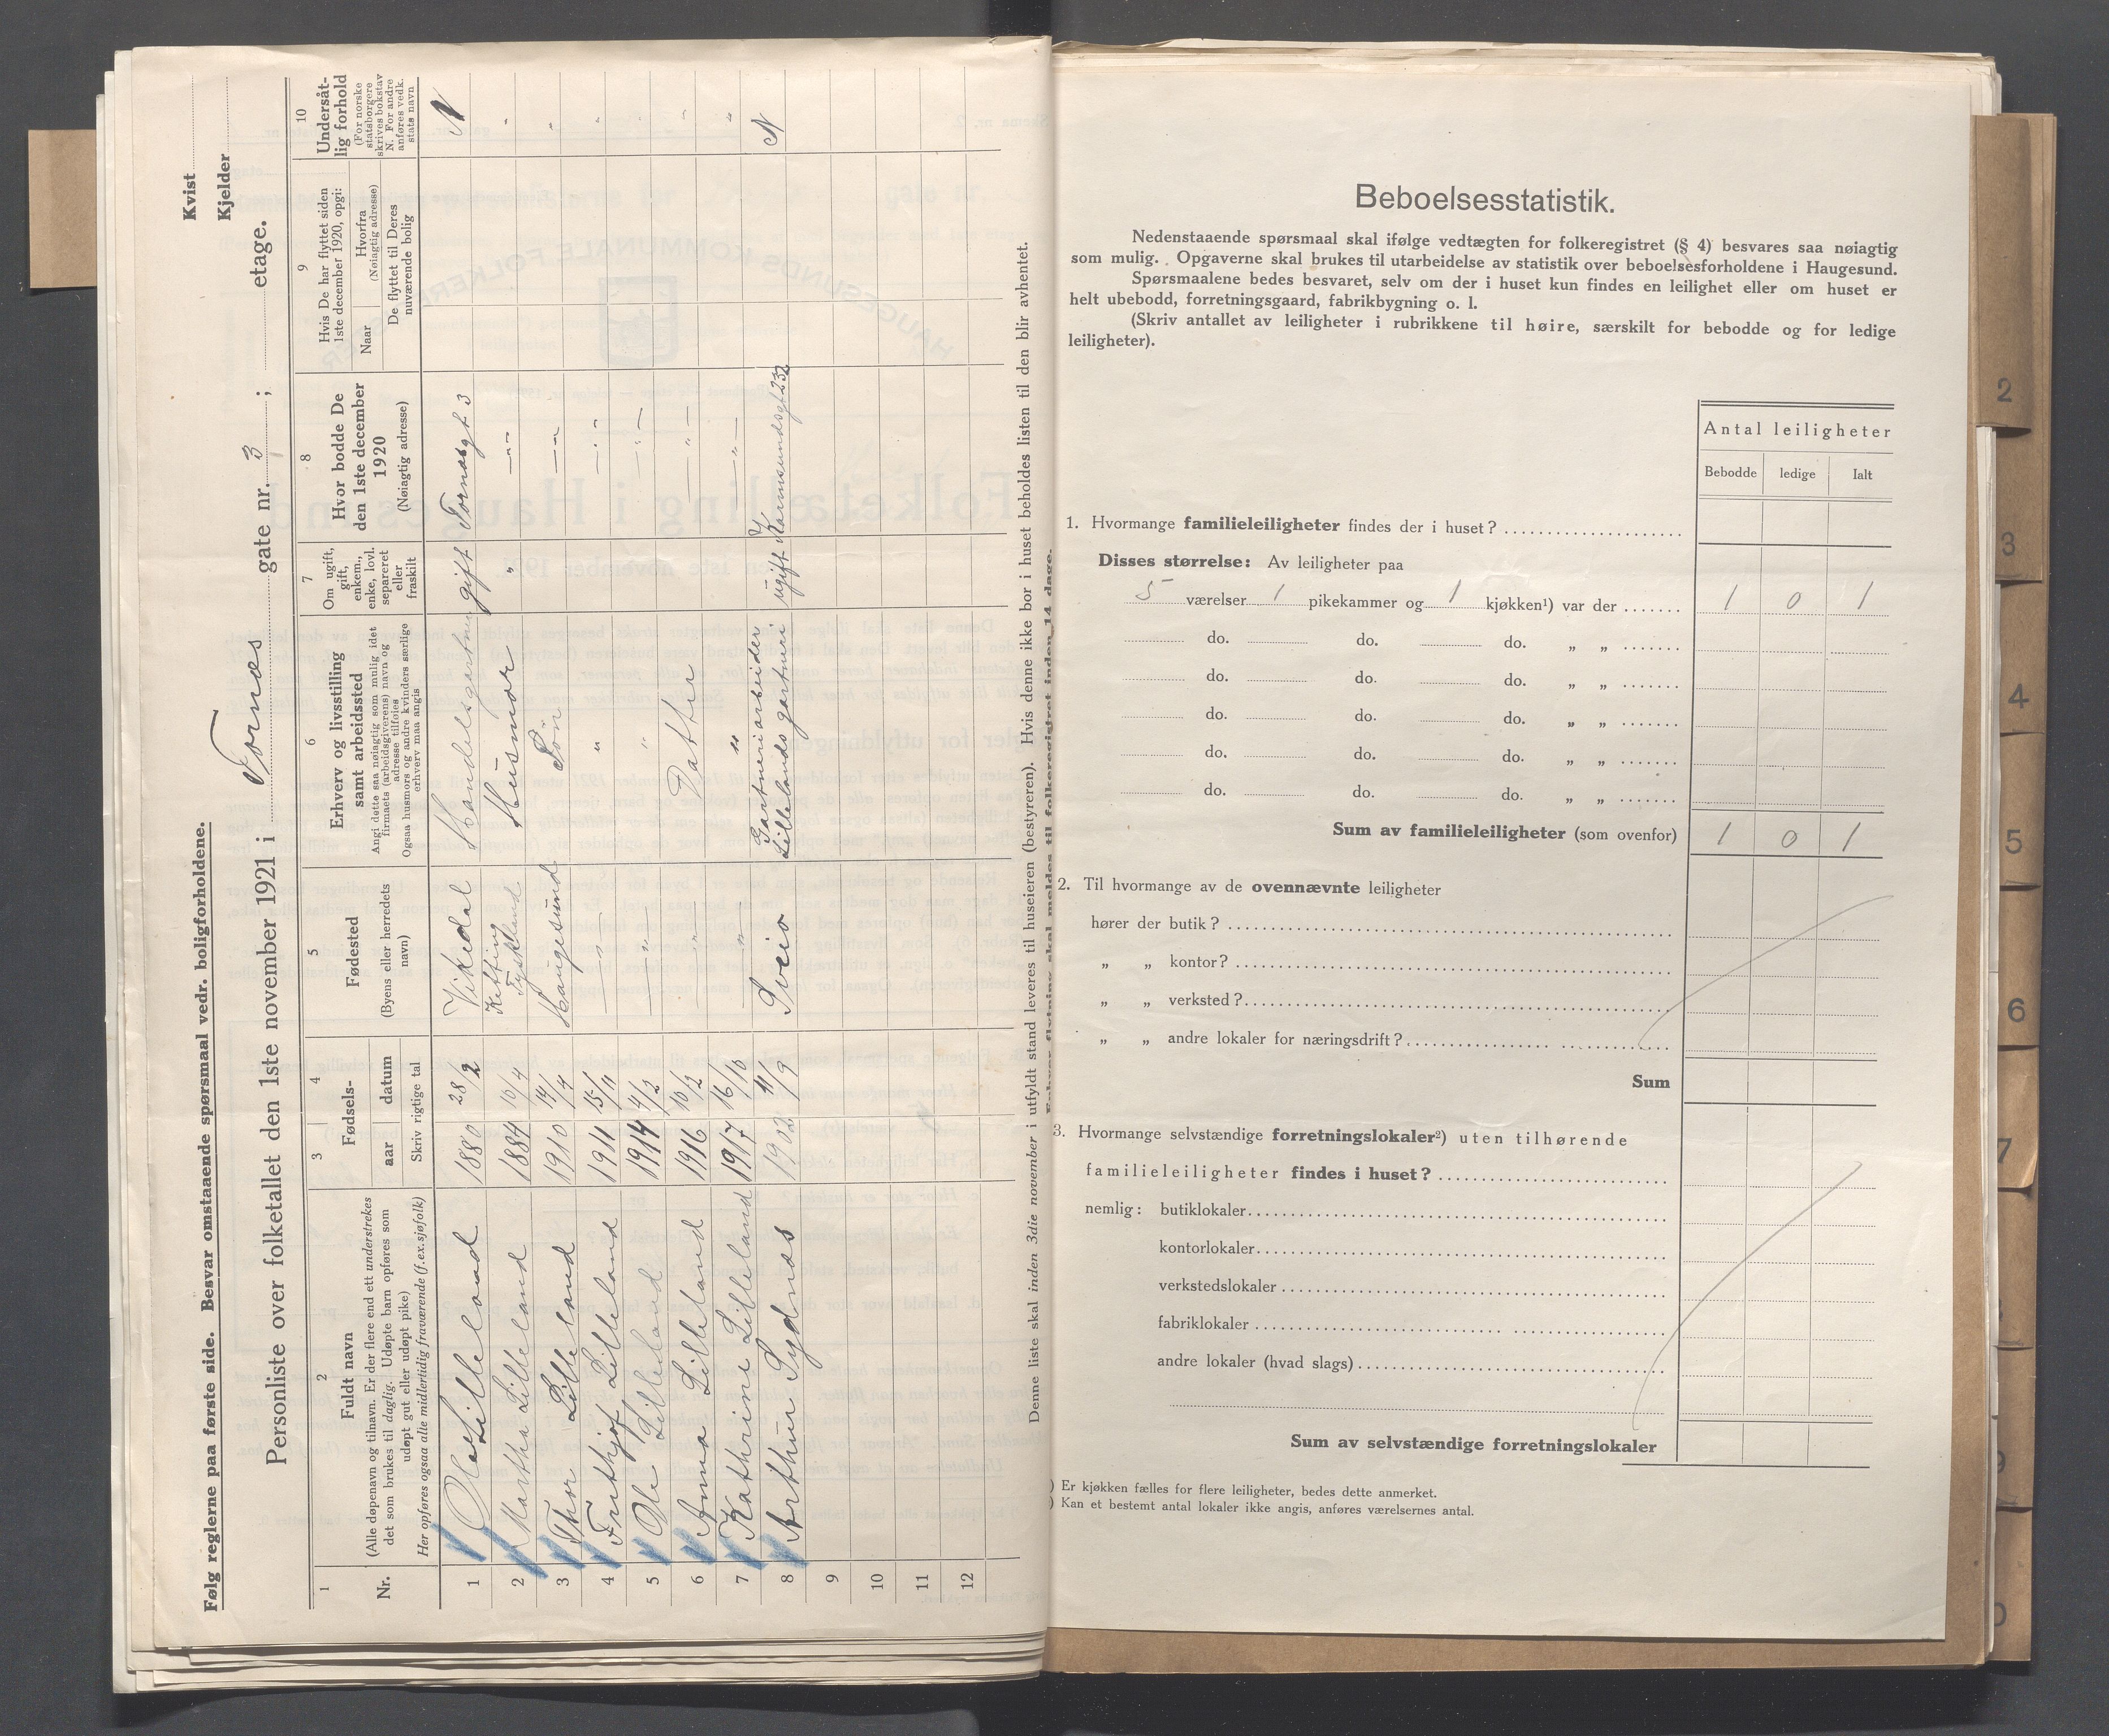 Følg reglerne paa første side. Besvar omstaaende spørsmaal vedr. boligforholdene.
Kvist
Kjelder
Personliste over folketallet den 1ste november 1921 i Tornæs gate nr. 3 ; etage.
1 2 3 4 5 6 7 8 9 10
Nr.
Fuldt navn
(Alle døpenavn og tilnavn. Er der flere end ett understrekes
det som brukes til daglig. Udøpte barn opføres som
udøpt gut eller udøpt pike)
Her opføres ogsaa alle midlertidig fraværende (f.ex.sjøfolk)
Fødsels-
aar datum
Skriv rigtige tal
Fødested
(Byens eller herredets
navn)
Erhverv og livsstilling
samt arbeidssted
Angi dette saa nøiagtig som mulig idet
firmaets (arbeidsgiverens) navn og
adresse tilføies
Ogsaa husmors og andre kvinders særlige
erhverv maa angis
Om ugift,
gift,
enkem.,
enke, lovl.
separeret
eller
fraskilt
Hvor bodde De
den 1ste december
1920
(Nøiagtig adresse)
Hvis De har flyttet siden
1ste december 1920, opgi:
Naar
Hvorfra
(Nøiagtig adresse)
De flyttet til Deres
nuværende bolig
Undersåt-
lig forhold
(For norske
statsborgere
skrives bokstav
N. For andre
anføres vedk.
stats navn
1 Olai Lilleland 1880 28/2 Vikedal Handelsgartner gift Tornæsgt 3 N
2 Martha Lilleland 1884 10/4 Ketting Tyskland Husmor " — " — "
3 Thor Lilleland 1910 14/4 Haugesund Søn — " — "
4 Frithjof Lilleland 1911 15/11 — " — " — " — "
5 Ole Lilleland 1914 4/2 — " — " — " — "
6 Anna Lilleland 1916 10/2 — " — Datter — " — "
7 Kathrine Lilleland 1917 16/10 — " — " — " — "
8 Arthur Sydnes 1902 11/9 Sveio Gartneriarbeider Lillelands gartneri ugift Karmsundsgt 232 N
9
10
11
12
Denne liste skal inden 3die november i utfyldt stand leveres til huseieren (bestyreren). Hvis denne ikke bor i huset beholdes listen til den blir avhentet.
Enhver flytning skal meldes til folkeregistret inden 14 dage.
Beboelsesstatistik.
Nedenstaaende spørsmaal skal ifølge vedtægten for folkeregistret (§ 4) besvares saa nøiagtig
som mulig. Opgaverne skal brukes til utarbeidelse av statistik over beboelsesforholdene i Haugesund.
Spørsmaalene bedes besvaret, selv om der i huset kun findes en leilighet eller om huset er
helt ubebodd, forretningsgaard, fabrikbygning o. l.
(Skriv antallet av leiligheter i rubrikkene til høire, særskilt for bebodde og for ledige
leiligheter).
Antal leiligheter
Bebodde ledige Ialt
1. Hvormange familieleiligheter findes der i huset?
Disses størrelse: Av leiligheter paa
5 værelser 1 pikekammer og 1 kjøkken¹) var der 1 0 1
do. do. do. „ „
do. do. do. „ „
do. do. do. „ „
do. do. do. „ „
do. do. do. „ „
Sum av familieleiligheter (som ovenfor) 1 0 1
2. Til hvormange av de ovennævnte leiligheter
hører der butik?
„ „ kontor?
„ „ verksted?
„ „ andre lokaler for næringsdrift?
Sum
3. Hvormange selvstændige forretningslokaler²) uten tilhørende
familieleiligheter findes i huset?
nemlig: butiklokaler
kontorlokaler
verkstedslokaler
fabriklokaler
andre lokaler (hvad slags)
Sum av selvstændige forretningslokaler
) Er kjøkken fælles for flere leiligheter, bedes dette anmerket.
) Kan et bestemt antal lokaler ikke angis, anføres værelsernes antal.
2
3
4
5
6
7
9